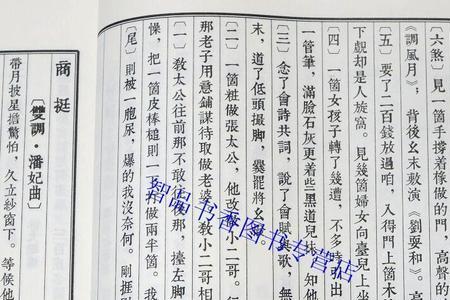 〔六煞〕見一箇手撐着椽做的門,高聲的
《調風月》;背後幺末敷演《劉耍和》
〔五〕要了二百錢放過咱,入得門上箇木
下覷却是人旋窩。見幾箇婦女向臺兒上
〔四〕一箇女孩子轉了幾遭,不多時出
一管筆,滿臉石灰更着些黑道兒抹。知他
〔三〕念了會詩共詞,説了會賦與歌,
末,道了低頭撮脚,爨罷將幺
〔二〕一箇粧做張太公,他改做小二哥。行
那老子用意鋪謀待取做老婆。教小二哥相
〔一〕教太公往前那不敢往後那,擡左脚
懆,把一箇皮棒槌則一下打做兩半箇。
〔尾〕則被一胞尿,爆的我沒奈何。剛捱
商挺
〔雙調·潘妃曲〕
帶月披星擔驚怕,久立紗窗下。等候他
智品书香图书专营店